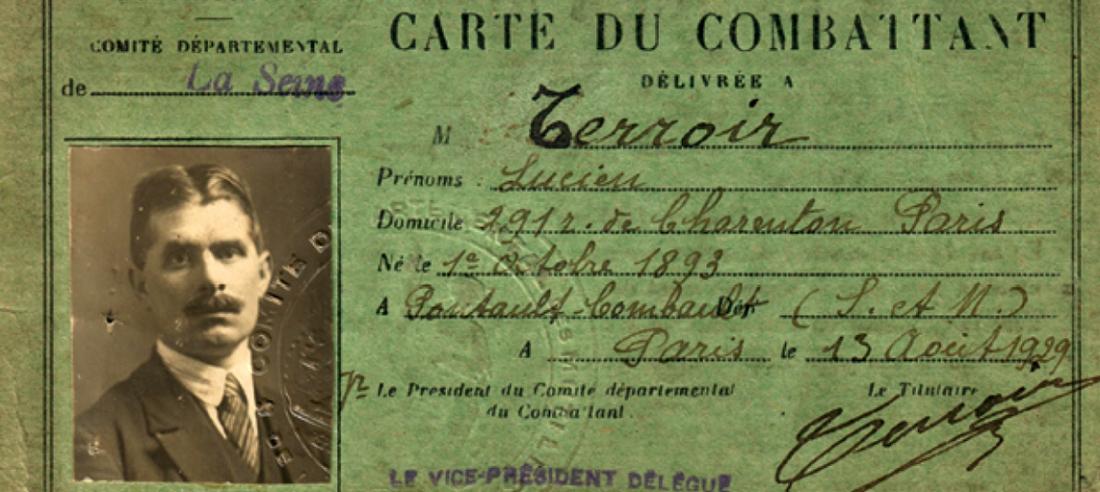 COMITÉ DÉPARTEMENTAL
de La Seine
CARTE DU COMBATTANT
DÉLIVRÉE A
M Terroir
Prénoms : Lucien
Domicile 291 r. de Charenton Paris
Né le 1er Octobre 1893
A Pontault-Combault Dép. (S. et M.)
A Paris le 13 Août 1929
Pr Le President du Comité départemental
du Combattant.
Le Titulaire
Terroir
LE VICE-PRÉSIDENT DÉLÉGUÉ
COMITÉ D